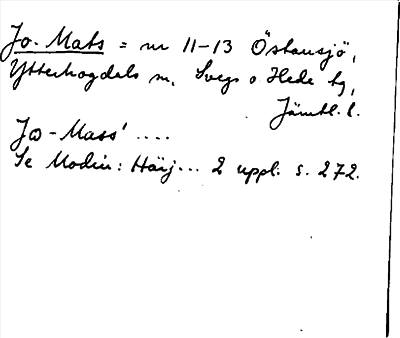 Jo-Mats = nr 11-13 Östansjö,
Ytterhogdals sn, Svegs o Hede tg,
Jämtl. l.
Jo-Mass' ....
Se Modin: Härj... 2 uppl. s. 272.